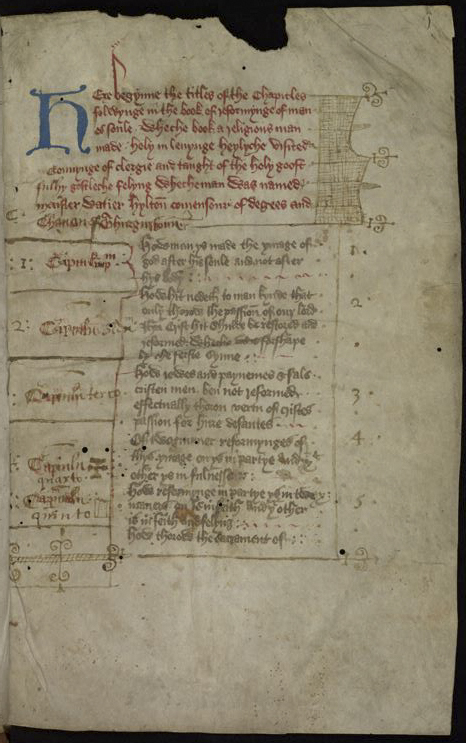 Here begynne the titles of the Chapitles
folwynge in the book of reformynge of man
es soule. Wheche book a religious man
made holy in levynge heylyche visited
comynge of clergie and taught of the holy goost
fully gostleche felyng Whecheman was named
meister Watier hylton comensour of degrees and
Chanon
1
Capitulum
How man ys made the ymage of
god after his soule and not after
his body
1
2
Capitulum
How hit nedeth to man kynde that
only thorow the passion of our lord
Ihu Crist hit shulde be restored and
reformed Wheche was
by the ferste synne
2
Capitulum tercio
How iewes and paynemes & fals
cristen men ben not reformed
effectually thorow vertu of cristes
passion for hure defautes
3
Capitulum
quarto
Of two maner reformynges of
this ymage on ys in partye and yt
other ys in fulnesse
4
Capitulum
quinto
How reformynge in partye ys in two
maners on ys in feith and yt other
is in feith and felyng
5
How thorow the sacrament of